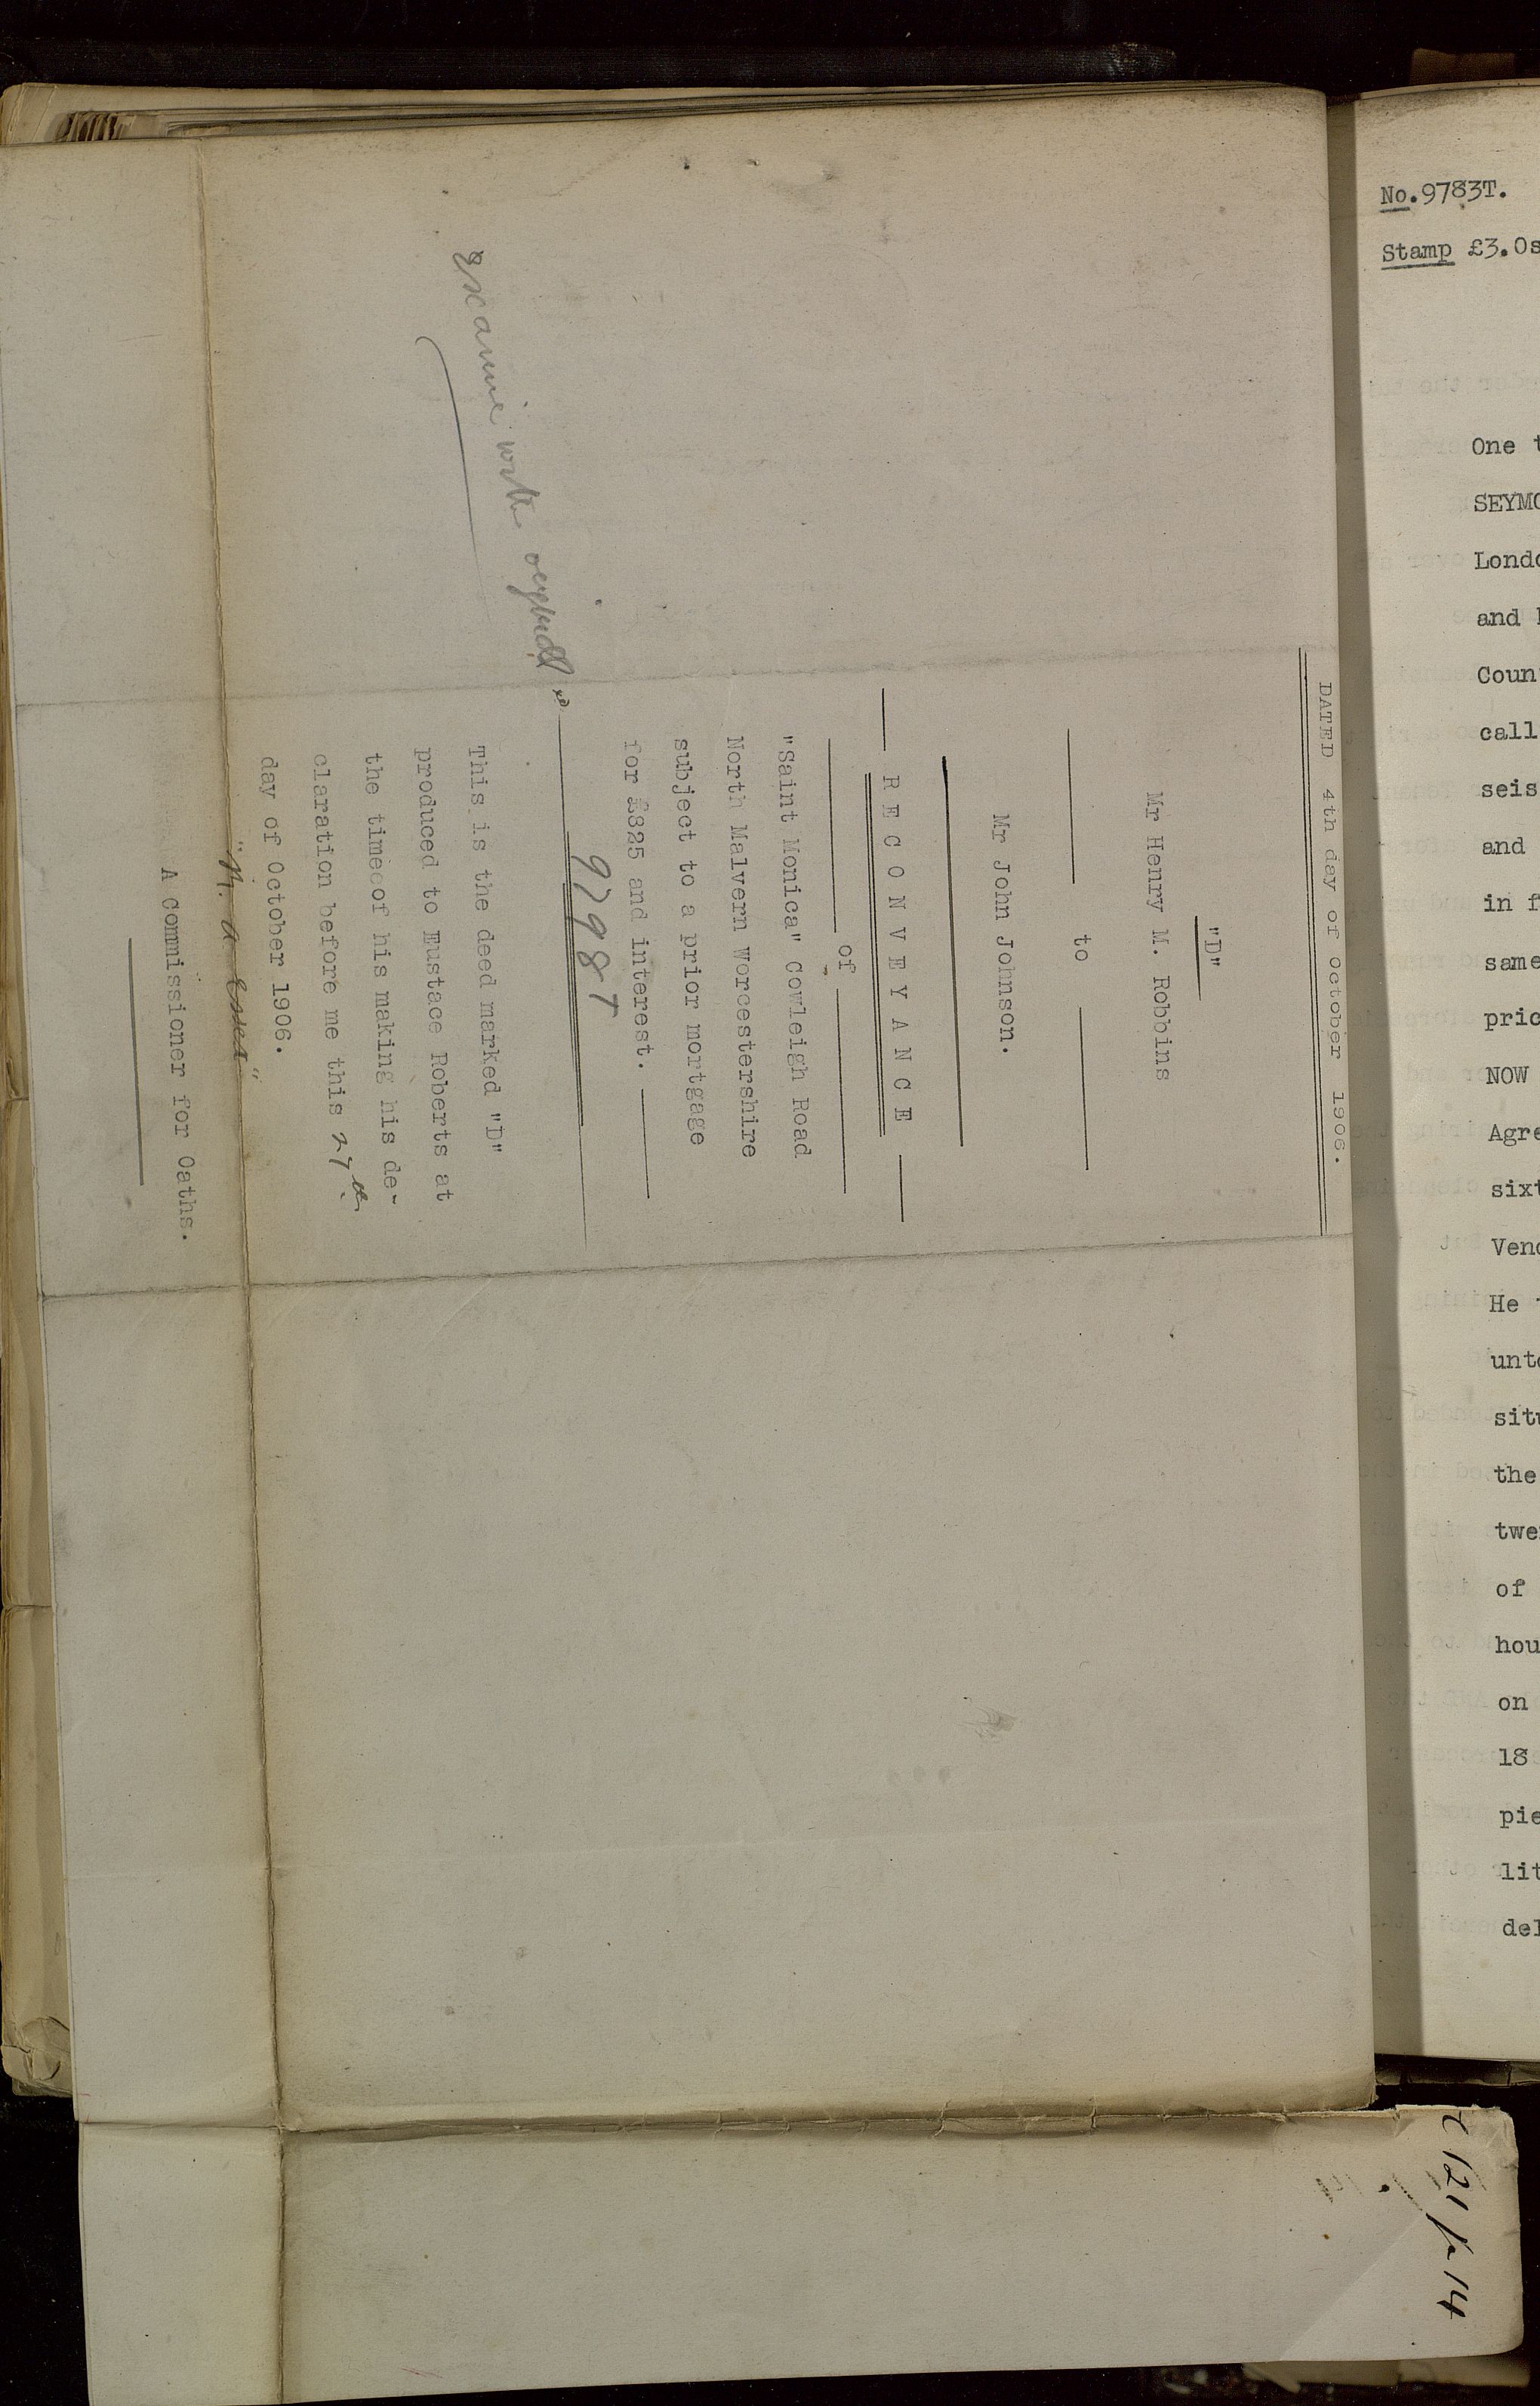 DATED 4th day of October 1906.
"D"
Mr Henry M. Robbins
to
Mr John Johnson.
RECONVEYANCE
of
"Saint Monica" Cowleigh Road
North Malvern Worcestershire
subject to a prior mortgage
for £325 and interest.
This is the deed marked "D"
produced to Eustace Roberts at
the timeof his making his de-
claration before me this 27th
day of October 1906.
A Commissioner for Oaths.
No.9783T.
Stamp £3.0s
One t
SEYMO
Londo
and
Coun
call
seis
and
in f
same
pric
NOW
Agre
sixt
Vend
He
unto
situ
the
twe
of
hou
on
18
pie
lit
del
121 p 14